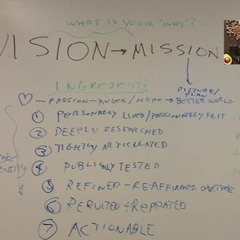 WHAT IS YOUR "WHY"?
VISION → MISSION
INGREDIENTS
PICTURE/
PLAN
♡ — PASSION - ANGER / HOPE → BETTER WORLD
① PERSONALLY LIVED / PASSIONATELY FELT
② DEEPLY RESEARCHED
③ TIGHTLY ARTICULATED
④ PUBLICLY TESTED
⑤ REFINED - RE-AFFIRMED
⑥ REPEATED
⑦ ACTIONABLE